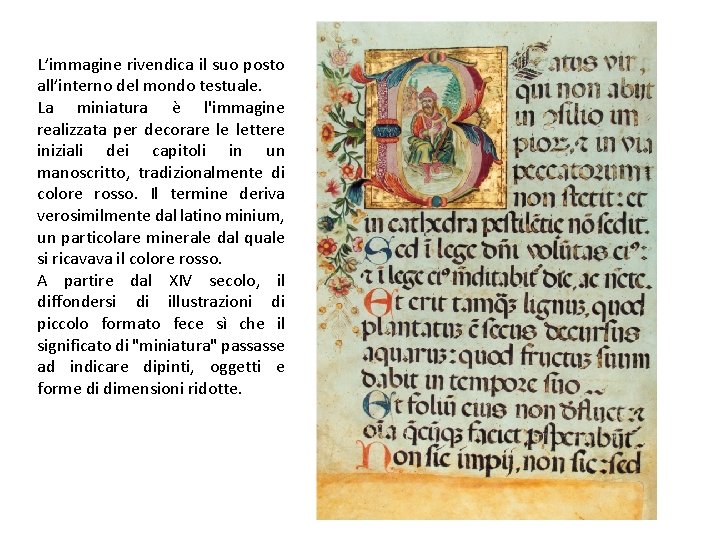 L’immagine rivendica il suo posto
all’interno del mondo testuale.
La miniatura è l'immagine
realizzata per decorare le lettere
iniziali dei capitoli in un
manoscritto, tradizionalmente di
colore rosso. Il termine deriva
verosimilmente dal latino minium,
un particolare minerale dal quale
si ricavava il colore rosso.
A partire dal XIV secolo, il
diffondersi di illustrazioni di
piccolo formato fece sì che il
significato di "miniatura" passasse
ad indicare dipinti, oggetti e
forme di dimensioni ridotte.
Beatus vir,
qui non abiit
in ɔsilio im
pioꝝ, ⁊ in via
peccatorum
non stetit: et
in cathedra pestilētie nō sedit.
Sed ī lege dn̄i volūtas eiꝰ:
⁊ ī lege eiꝰ mēditabit͛ die, ac nocte.
Et erit tamqȝ lignuȝ, quod
plantatuȝ ē secus decursus
aquaruȝ: quod fructuȝ suum
dabit in tempore suo
Et foliū eius non defluet: ⁊
oīa q̄cūqȝ faciet ꝓsperabūt͛.
Non sic impij, non sic: sed